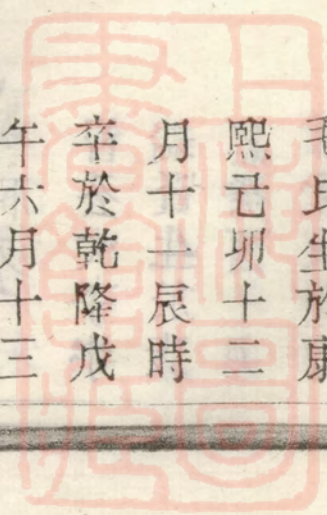 毛氏生於康
熙己卯十二
月十一辰時
卒於乾隆戊
午六月十三
上海圖書館藏